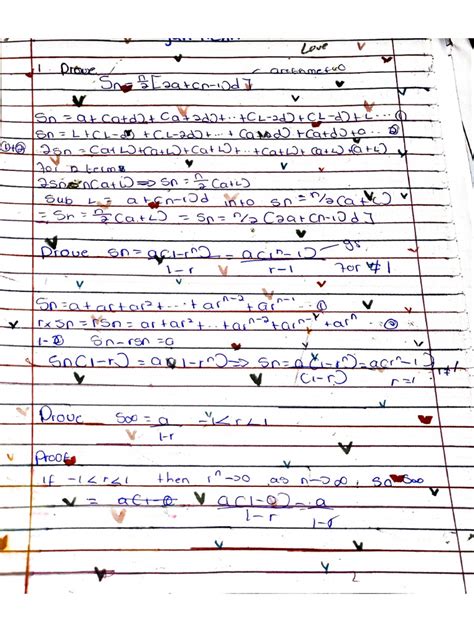 Love
1 Prove arithmetic
Sn = n/2 [2a+(n-1)d]
Sn = a+(a+d)+(a+2d)+...+(L-2d)+(L-d)+L... ①
Sn = L+(L-d)+(L-2d)+...+(a+2d)+(a+d)+a... ②
①+② 2Sn = (a+L)+(a+L)+(a+L)+...+(a+L)+(a+L)+(a+L)
for n terms
2Sn = n(a+L) ⇒ Sn = n/2 (a+L)
Sub L = a+(n-1)d into Sn = n/2 (a+L)
= Sn = n/2 (a+L) = Sn = n/2 [2a+(n-1)d]
Prove Sn = a(1-rⁿ)/1-r = a(rⁿ-1)/r-1 for r≠1
Sn = a+ar+ar²+...+arⁿ⁻²+arⁿ⁻¹... ①
r×Sn = rSn = ar+ar²+...+arⁿ⁻²+arⁿ⁻¹+arⁿ ②
1-② Sn-rSn = a
Sn(1-r) = a(1-rⁿ) ⇒ Sn = a(1-rⁿ)/(1-r) = a(rⁿ-1)/r-1 r≠1
Prove S∞ = a/1-r -1<r<1
Proof
if -1<r<1 then rⁿ→0 as n→∞, Sn S∞
= a(1-0 a(1-0)/1-r = a/1-r